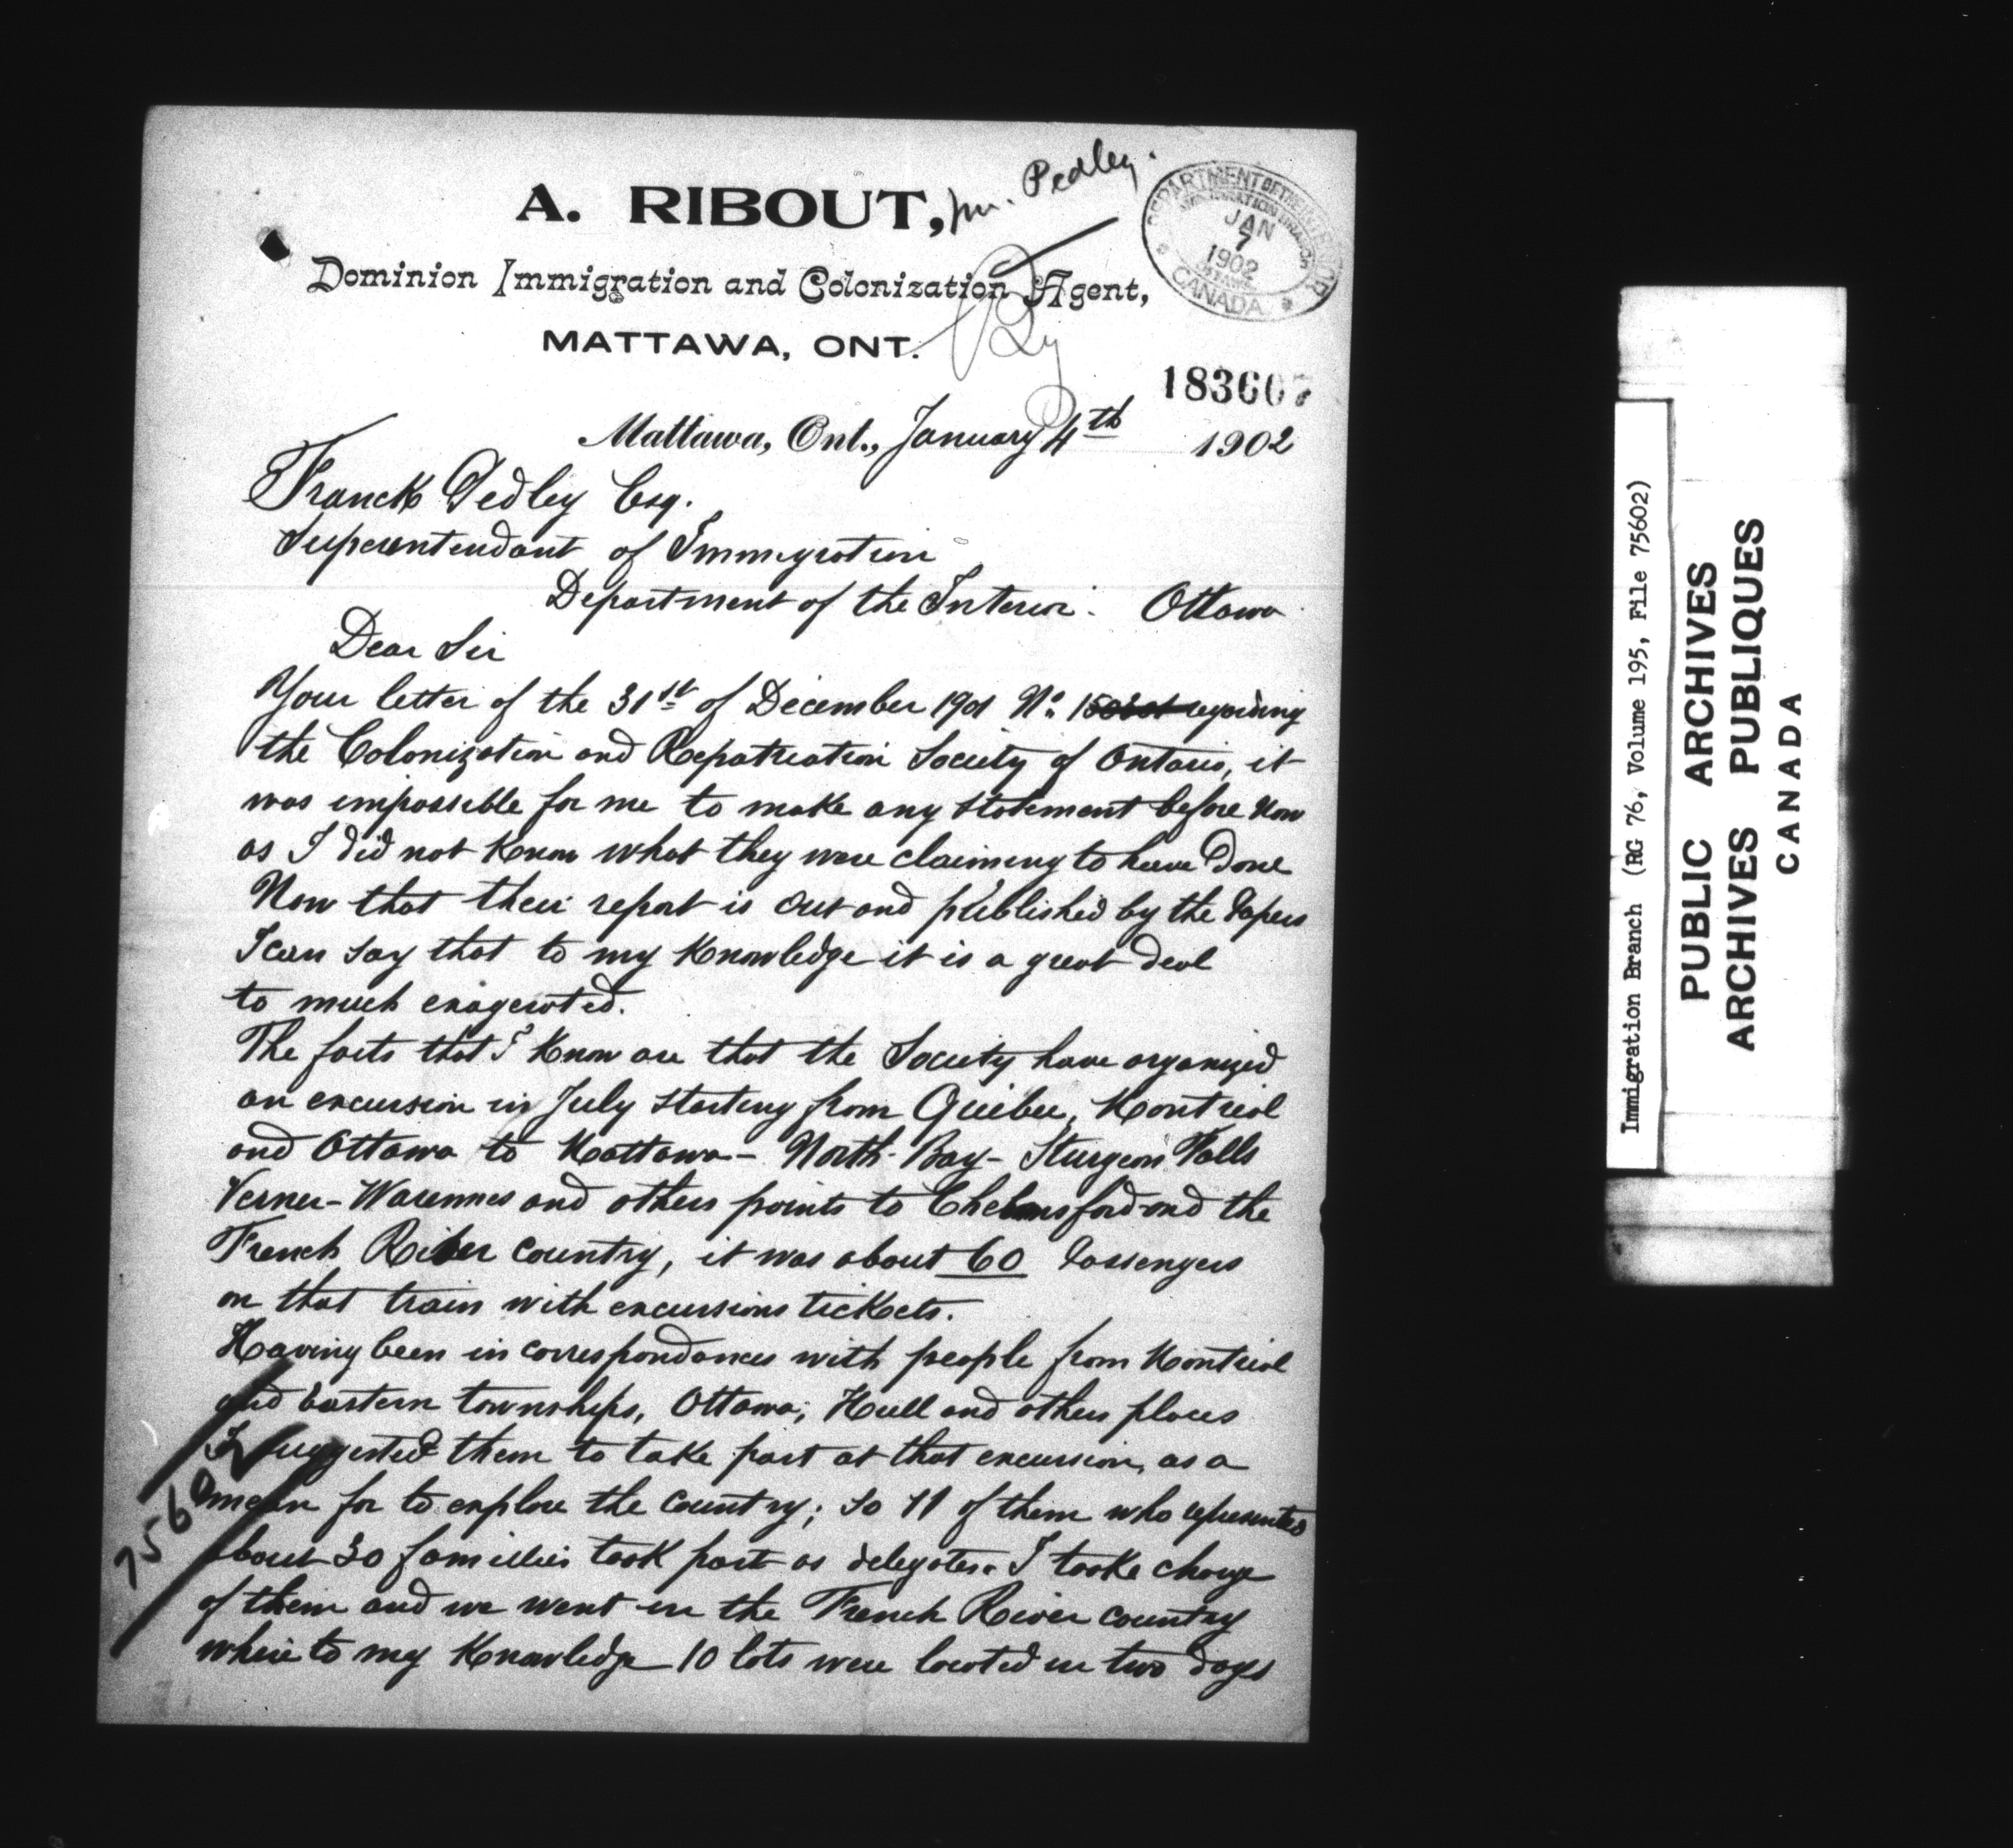 A. RIBOUT,
Mr. Pedley.
Dominion Immigration and Colonization Agent,
MATTAWA, ONT.
DEPARTMENT OF THE INTERIOR
IMMIGRATION BRANCH
JAN
7
1902
OTTAWA
CANADA
183607
Mattawa, Ont., January 4th 1902
Franck Pedley Esq.
Superentendant of Immigration
Department of the Interior. Ottawa
Dear Sir
Your letter of the 31st of December 1901 No. regarding
the Colonization and Repatriation Society of Ontario, it
was impossible for me to make any statement before now
as I did not know what they were claiming to have done
Now that their report is out and published by the papers
I can say that to my knowledge it is a great deal
to much exagerated.
The facts that I know are that the Society have organized
an excursion in July starting from Quebec, Montreal
and Ottawa to Mattawa - North-Bay - Sturgeon Falls
Verner - Warennes and others points to Chelmsford and the
French River country, it was about 60 Passengers
on that train with excursions tickets.
Having been in correspondances with people from Montreal
and Eastern townships, Ottawa, Hull and others places
I suggested them to take part at that excursion, as a
mean for to explore the country; so 11 of them who represented
about 30 families took part as delegates. I tooke charge
of them and we went in the French River country
where to my Knowledge 10 lots were located in two days
75602
Immigration Branch (RG 76, Volume 195, File 75602)
PUBLIC ARCHIVES
ARCHIVES PUBLIQUES
CANADA